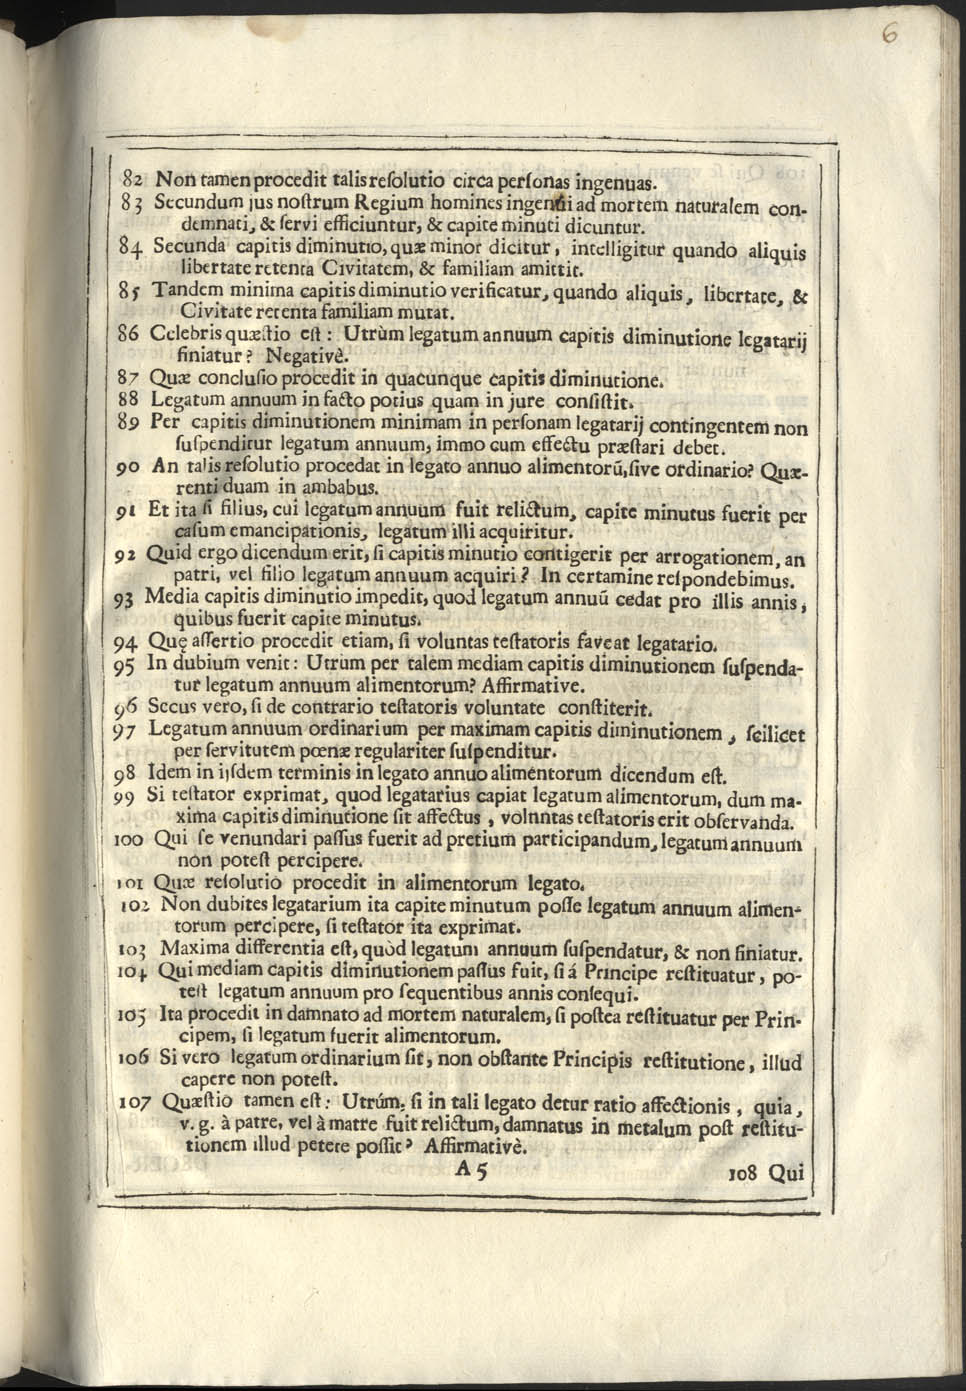 6
82 Non tamen procedit talis resolutio circa personas ingenuas.
83 Secundum jus nostrum Regium homines ingenui ad mortem naturalem con-
demnati, & servi efficiuntur, & capite minuti dicuntur.
84 Secunda capitis diminutio, quæ minor dicitur, intelligitur quando aliquis
libertate retenta Civitatem, & familiam amittit.
85 Tandem minima capitis diminutio verificatur, quando aliquis, libertate, &
Civitate retenta familiam mutat.
86 Celebris quæstio est: Utrùm legatum annuum capitis diminutione legatarij
finiatur? Negativè.
87 Quæ conclusio procedit in quacunque capitis diminutione.
88 Legatum annuum in facto potius quam in jure consistit.
89 Per capitis diminutionem minimam in personam legatarij contingentem non
suspenditur legatum annuum, immo cum effectu præstari debet.
90 An talis resolutio procedat in legato annuo alimentorũ, sive ordinario? Quæ-
renti duam in ambabus.
91 Et ita si filius, cui legatum annuum fuit relictum, capite minutus fuerit per
casum emancipationis, legatum illi acquiritur.
92 Quid ergo dicendum erit, si capitis minutio contigerit per arrogationem, an
patri, vel filio legatum annuum acquiri? In certamine respondebimus.
93 Media capitis diminutio impedit, quod legatum annuũ cedat pro illis annis,
quibus fuerit capite minutus.
94 Quę assertio procedit etiam, si voluntas testatoris faveat legatario.
95 In dubium venit: Utrum per talem mediam capitis diminutionem suspenda-
tur legatum annuum alimentorum? Affirmative.
96 Secus vero, si de contrario testatoris voluntate constiterit.
97 Legatum annuum ordinarium per maximam capitis diminutionem, scilicet
per servitutem pœnæ regulariter suspenditur.
98 Idem in ijsdem terminis in legato annuo alimentorum dicendum est.
99 Si testator exprimat, quod legatarius capiat legatum alimentorum, dum ma-
xima capitis diminutione sit affectus, volnntas testatoris erit observanda.
100 Qui se venundari passus fuerit ad pretium participandum, legatum annuum
non potest percipere.
101 Quæ resolutio procedit in alimentorum legato.
102 Non dubites legatarium ita capite minutum posse legatum annuum alimen-
torum percipere, si testator ita exprimat.
103 Maxima differentia est, quòd legatum annuum suspendatur, & non finiatur.
104 Qui mediam capitis diminutionem passus fuit, si á Principe restituatur, po-
test legatum annuum pro sequentibus annis consequi.
105 Ita procedit in damnato ad mortem naturalem, si postea restituatur per Prin-
cipem, si legatum fuerit alimentorum.
106 Si vero legatum ordinarium sit, non obstante Principis restitutione, illud
capere non potest.
107 Quæstio tamen est: Utrúm, si in tali legato detur ratio affectionis, quia,
v. g. à patre, vel à matre fuit relictum, damnatus in metalum post restitu-
tionem illud petere possit? Affirmativè.
A 5
108 Qui